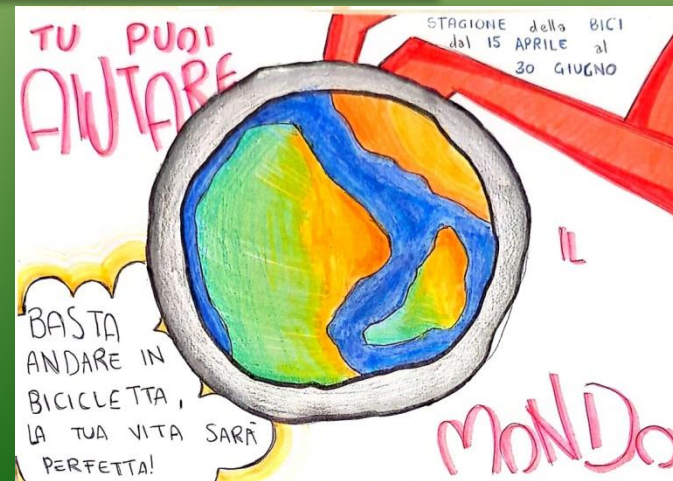 TU PUOI
AIUTARE
STAGIONE della BICI
dal 15 APRILE al
30 GIUGNO
IL
MONDO
BASTA
ANDARE IN
BICICLETTA,
LA TUA VITA SARÀ
PERFETTA!